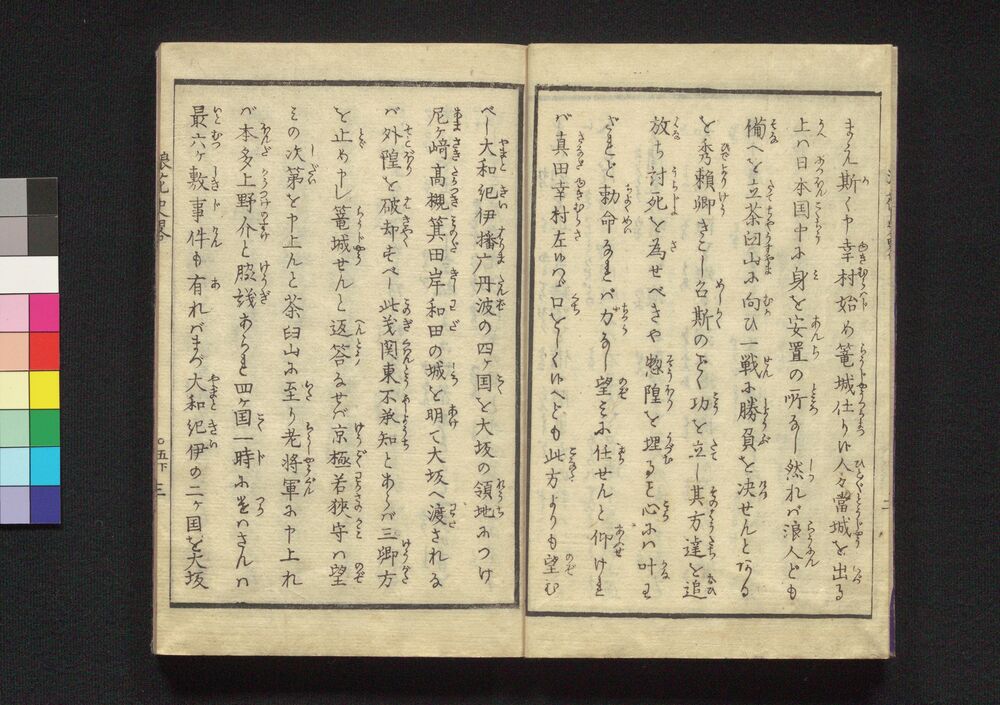 まうん斯くや幸村始め篭城仕り候人々當城を出る
上ハ日本国中に身を安置の所なし然れバ浪人ども
備へを立茶臼山に向ひ一戦に勝負を决せんとある
を秀賴卿きこし召斯のごとく功を立し其方達を追
放ち討死を為せべきや惣隍を埋るも心にハ叶わ
ざれど勅命なれバ力なし望ミに任せんと仰けれ
バ真田幸村左候ハヾ口をしく候へども此方よりも望む
べし大和紀伊播广丹波の四ヶ国を大坂の領地につけ
尼ヶ﨑髙槻箕田岸和田の城を明て大坂へ渡されな
バ外隍を破却すべし此義関東不承知とあらバ三郷方
を止め申し篭城せんと返答なせバ京極若狹守ハ望
ミの次第を申上んと茶臼山に至り老将軍に申上れ
バ本多上野介と股議あられ四ヶ国一時に送ハさんハ
最六ヶ敷事件も有れバまづ大和紀伊の二ヶ国を大坂
浪花史畧
〇五下
三
二